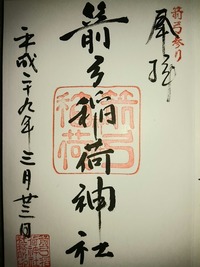 箭弓参り
奉拝
箭弓稲荷神社
箭弓稲荷
平成二十九年三月廿三日